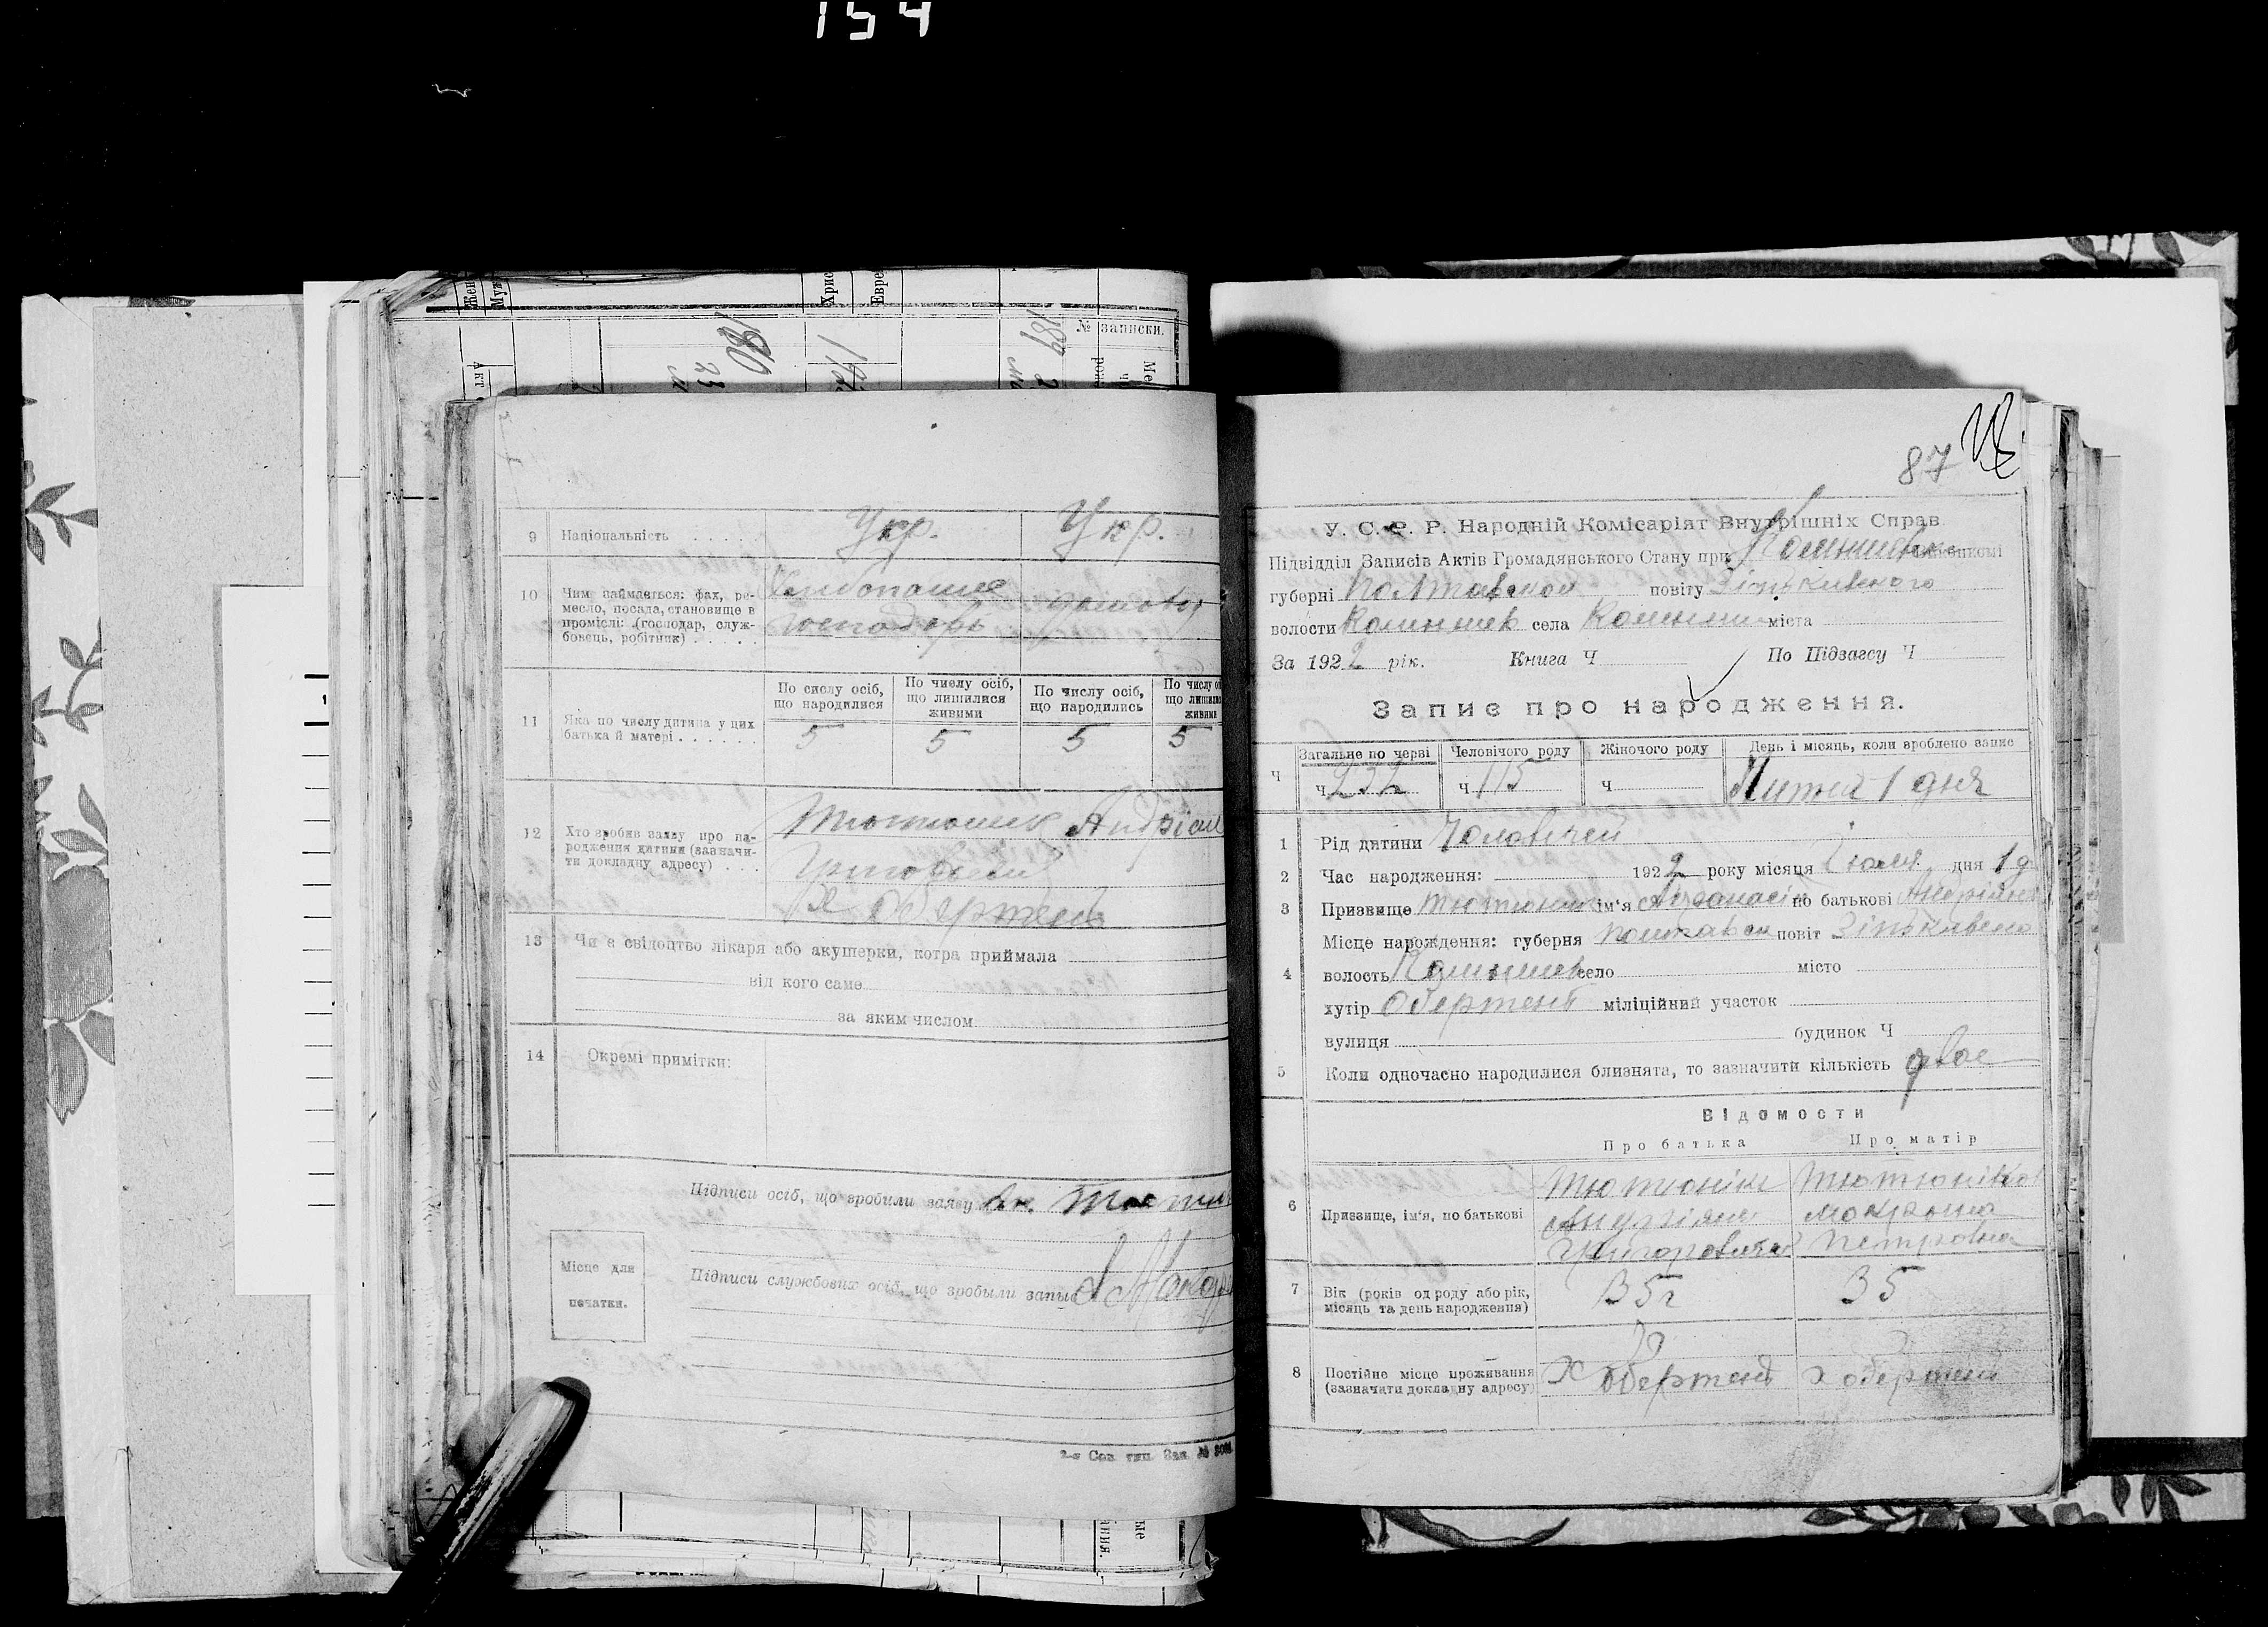 154
Жен
Муж
Хрис
Евре
180
189
№ записки.
9 Національність Укр. Укр.
10 Чим займається: фах, ре-
месло, посада, становище в
проміслі: (господар, служ-
бовець, робітник)
господарь
11 Яка по числу дитина у цих
батька й матері
По сислу осіб,
що народилися
По числу осіб,
що лишилися
живими
По числу осіб,
що народились
По числу ос
що лишили
живими
5 5 5 5
12 Хто зробив заяву про на-
родження дитини (зазначи-
ти докладну адресу)
Тютюник Андріан
Х Обертень
13 Чи є свідоцтво лікаря або акушерки, котра приймала
від кого саме
за яким числом
14 Окремі примітки:
Підписи осіб, що зробили заяву Ан. Тютюн
Місце для
печатки.
Підписи службових осіб, що зробыли запыс
2-я Сов. тип. Зак. №
87
У. С. Р. Р. Народній Комісаріят Внутрішніх Справ
Підвідділ Записів Актів Громадянського Стану при
губерні Полтавской повіту Зіньківского
волости Комышев села Комыши міста
За 1922 рік. Книга Ч По Підзагсу Ч
Запис про народження.
Ч
Загальне по черві Человічого роду Жіночого роду День і місяць, коли зроблено запис
ч 232 ч 115 ч 1 дня
1 Рід дитини Чоловічей
2 Час народження: 1922 року місяця Июля дня 1 д
3 Призвище Тютюник ім'я Афанасій по батькові Андріяно
4 Місце народження: губерня Полтавск повіт Зіньківско
волость Комышев село місто
хутір Обертень міліційний участок
вулиця будинок Ч
5 Коли одночасно народилися близнята, то зазначити кількість двое
Відомости
Про батька Про матір
6 Призвище, ім'я, по батькові
Тютюнік Тютюнікова
Андріян Мокрона
Григоровичь Петровна
7 Вік (років од роду або рік,
місяць та день народження)
35 г 35
8 Постійне місце проживання
(зазначити докладну адресу)
Х Обертень х обертень